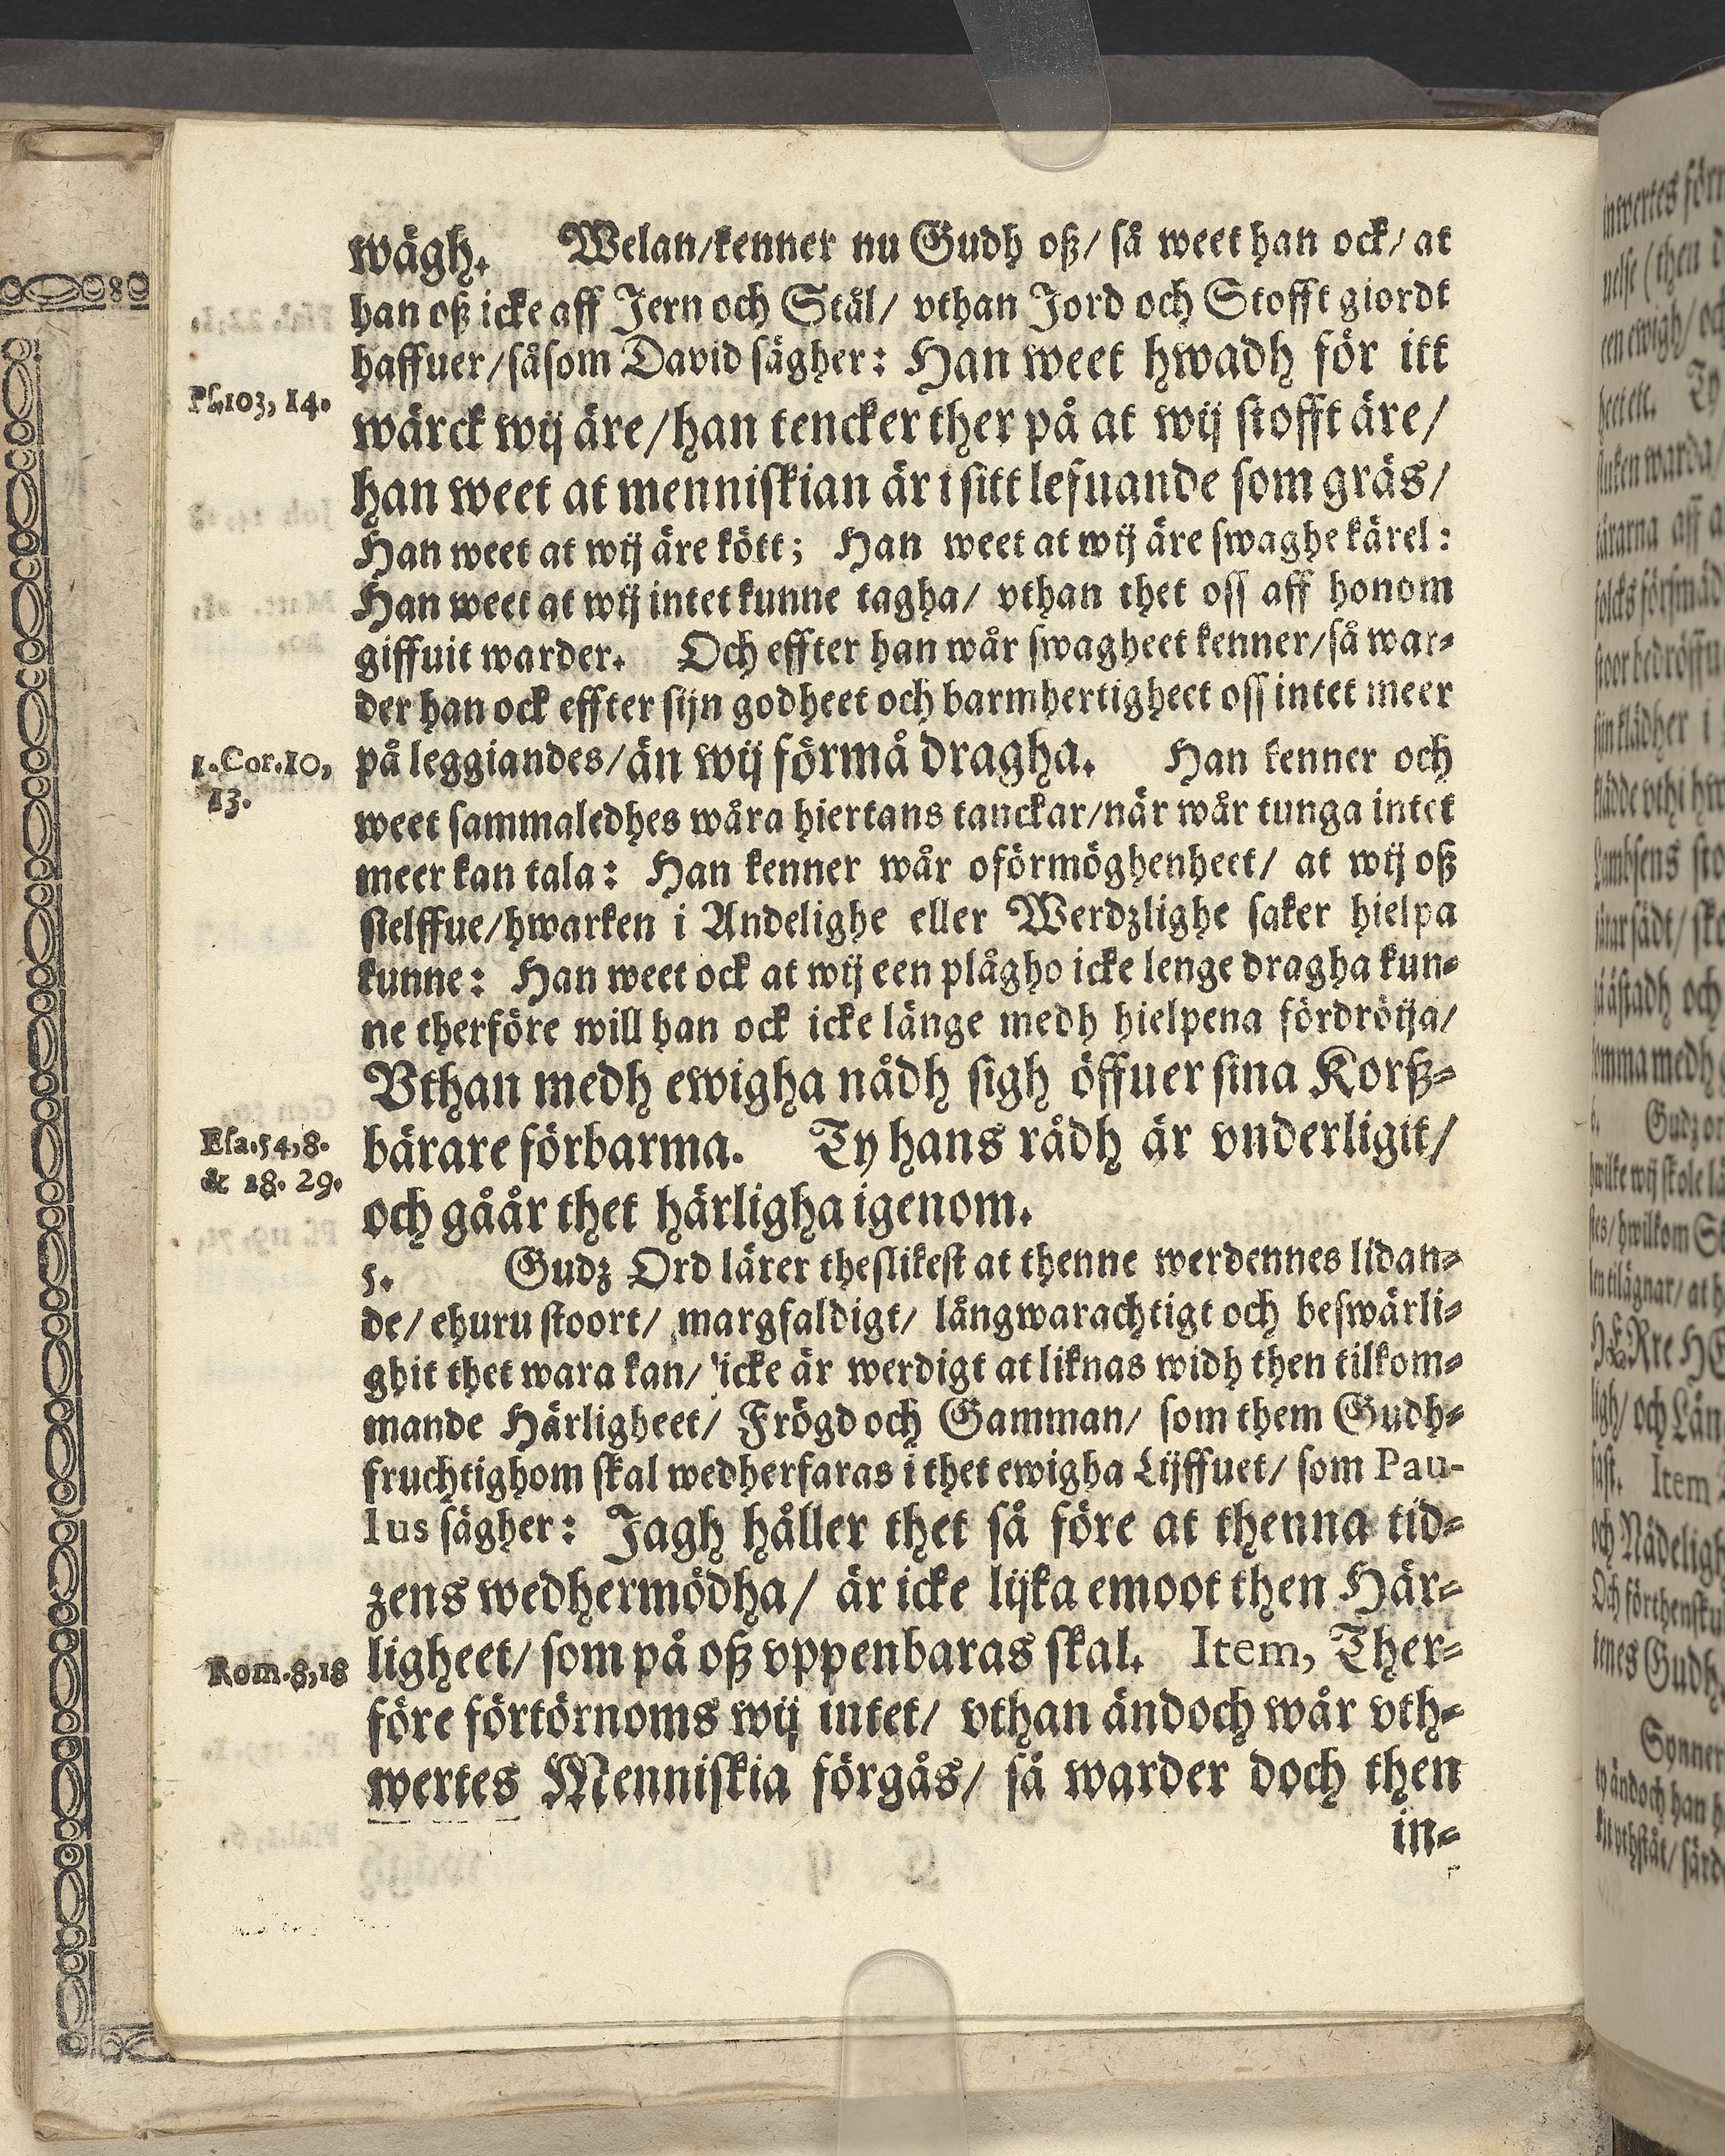 wägh. Welan/kenner nu Gudh oß/ så weet han ock/ at
han oß icke aff Jern och Stål/ vthan Jord och Stofft giordt
haffuer/såsom David sägher: Han weet hwadh för itt
Ps.103, 14.
wärck wij äre/han tencker ther på at wij stofft äre/
han weet at menniskian är i sitt lefuande som gräs/
Han weet at wij äre kött; Han weet at wij äre swaghe kärel:
Han weet at wij intet kunne tagha/ vthan thet oss aff honom
giffuit warder. Och effter han wår swagheet kenner/så war-
der han ock effter sijn godheet och barmhertigheet oss intet meer
1. Cor.10,
13.
på leggiandes/än wij förmå dragha. Han kenner och
weet sammaledhes wåra hiertans tanckar/när wår tunga intet
meer kan tala: Han kenner wår oförmöghenheet/ at wij oß
sielffue/hwarken i Andelighe eller Werdzlighe saker hielpa
kunne: Han weet ock at wij een plågho icke lenge dragha kun-
ne therföre will han ock icke länge medh hielpena fördröija/
Vthan medh ewigha nådh sigh öffuer sina Korß-
Esa.54,8.
& 28. 29.
bärare förbarma. Ty hans rådh är vnderligit/
och gåår thet härligha igenom.
5. Gudz Ord lärer theslikest at thenne werdennes lidan-
de/ ehuru stoort/ margfaldigt/ långwarachtigt och beswärli-
ghit thet wara kan/ icke är werdigt at liknas widh then tilkom-
mande Härligheet/ Frögd och Gamman/ som them Gudh-
fruchtighom skal wedherfaras i thet ewigha Lijffuet/ som Pau-
lus sägher: Jagh håller thet så före at thenna tid-
zens wedhermödha/ är icke lijka emoot then Här-
Rom.8,18
ligheet/ som på oß vppenbaras skal. Item, Ther-
före förtörnoms wij intet/ vthan ändoch wår vth-
wertes Menniskia förgås/ så warder doch then
in-